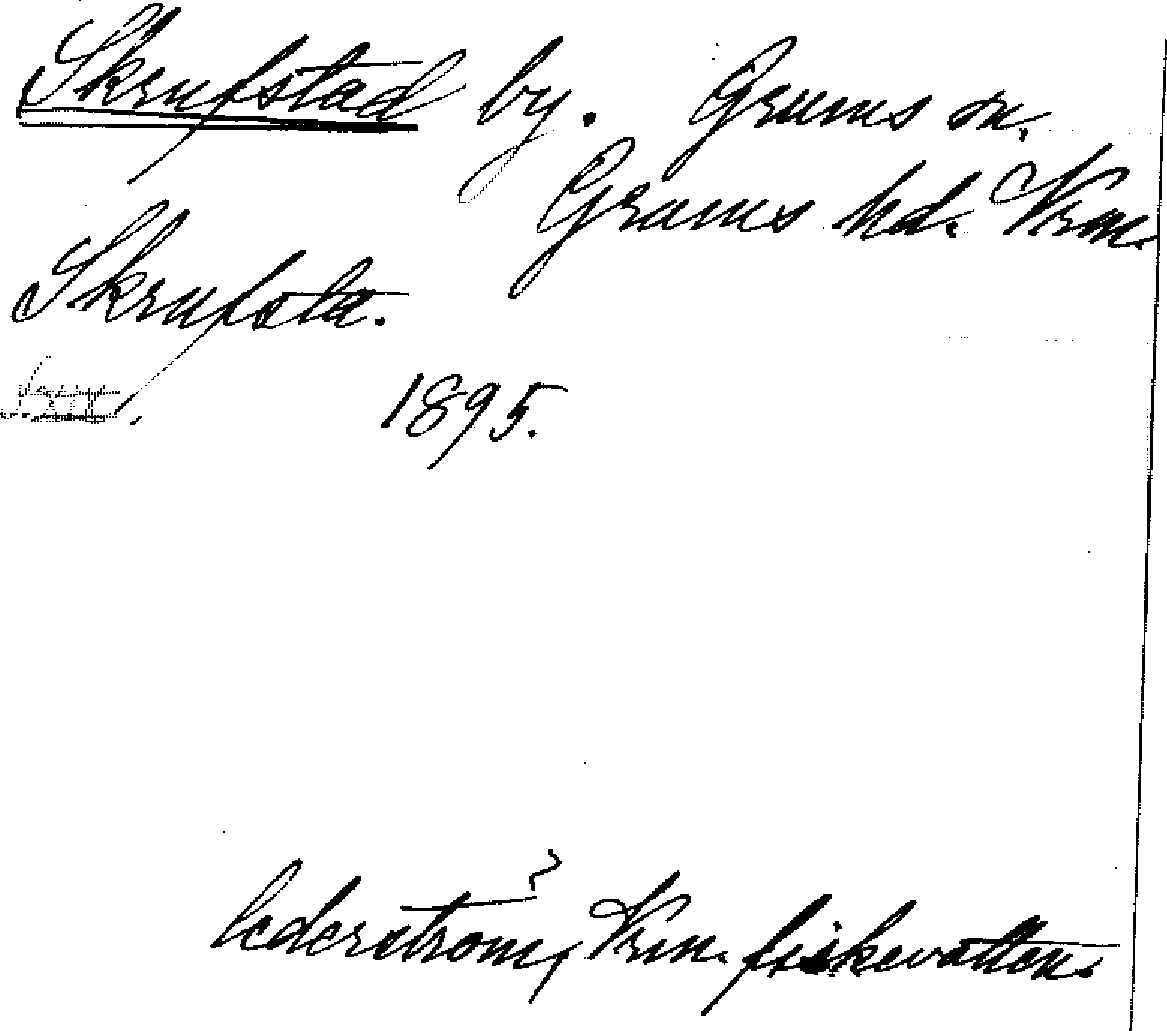 Skrufstad by. Grums sn.
Grums hd. Vrm.
Skrufsta.
1895.
Cederström, Vrm. fiskevatten.